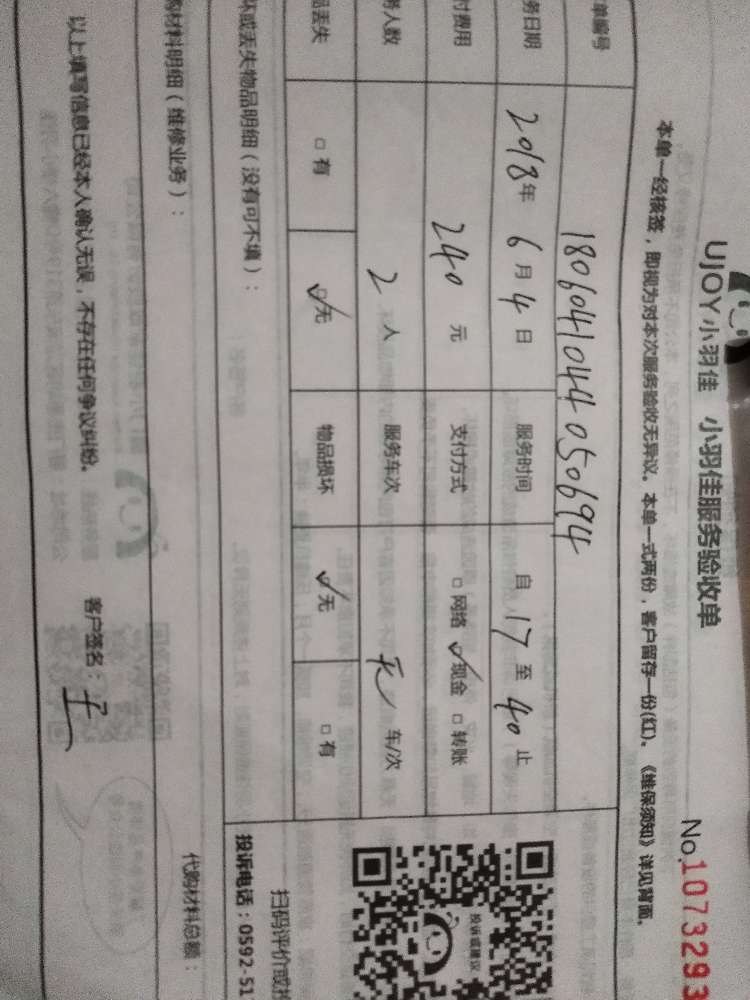 UJOY小羽佳 小羽佳服务验收单
No.1073293
本单一经核签，即视为对本次服务验收无异议。本单一式两份，客户留存一份(红)。《维保须知》详见背面。
单编号 180604104405069 4
务日期 2018年 6月 4日 服务时间 自 17 至 40 止
付费用 240 元 支付方式 □网络 ☑现金 □转账
务人数 2 人 服务车次 无 车/次
品丢失 □有 ☑无 物品损坏 ☑无 □有
坏或丢失物品明细（没有可不填）：
购材料明细（维修业务）：
代购材料总额：
以上填写信息已经本人确认无误，不存在任何争议纠纷。 客户签名：
投诉或建议
扫码评价或投
投诉电话：0592-51